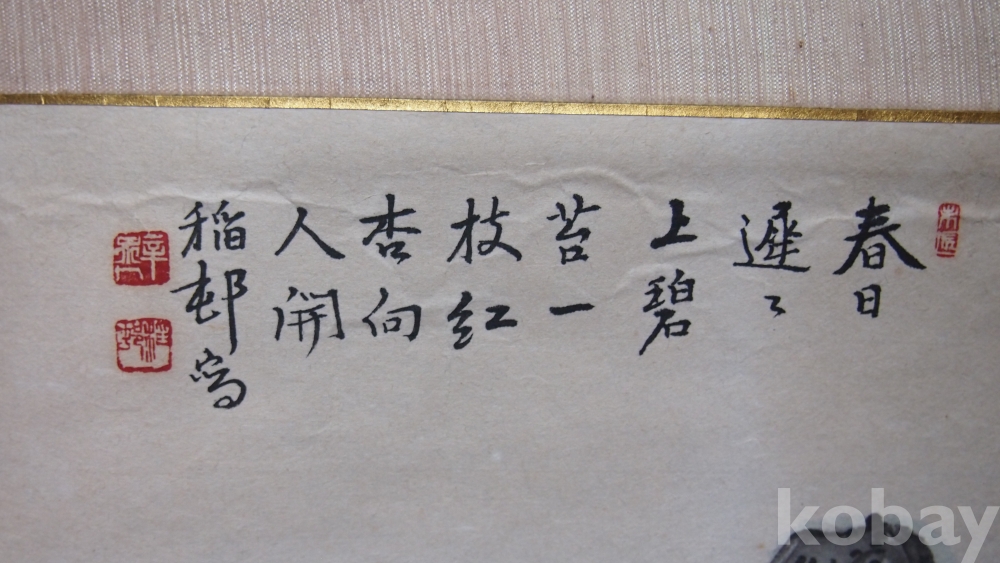 春日
遲々
上碧
苔一
枝紅
杏向
人開
稻邨寫
kobay